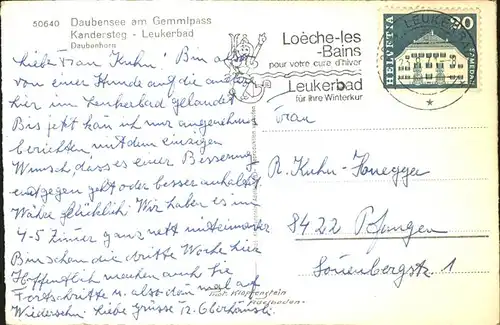 50640 Daubensee am Gemmipass
Kandersteg - Leukerbad
Daubenhorn
Liebe Frau Kuhn! Bin also
von einer Hunde auf die andere
hier im Leukerbad gelandet
Bis jetzt kan ich nur angenehmes
berichten mit dem einzigen
Wunsch dass es einer Besserung
entgegen geht oder besser anhaltet.
Wäre glücklich! Wir haben es im
4-5 Zimmer ganz nett miteinander
Bin schon die dritte Woche hier
Hoffentlich machen auch Sie
Fortschritte u. also dann mal auf
Wiedersehn. Liebe Grüsse
Loèche-les
-Bains
pour votre cure d'hiver
Leukerbad
für Ihre Winterkur
LEUKERBAD
HELVETIA
30
SAMEDAN
Frau
R. Kuhn-Honegger
8422 Pfungen
Sonnenbergstr. 1
Klopfenstein
Adelboden